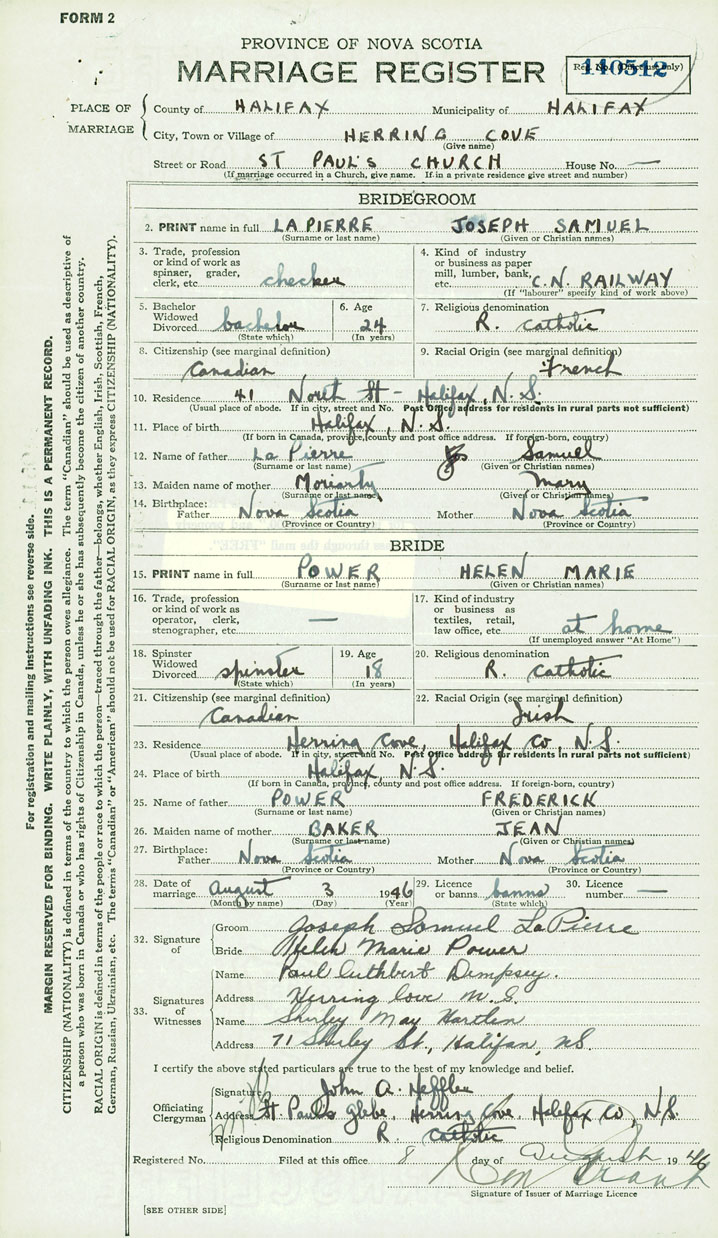 FORM 2
PROVINCE OF NOVA SCOTIA
MARRIAGE REGISTER
Reg. No. (Office use only)
140512
PLACE OF MARRIAGE
County of HALIFAX Municipality of HALIFAX
City, Town or Village of HERRING COVE
(Give name)
Street or Road ST PAUL'S CHURCH House No. —
(If marriage occurred in a Church, give name. If in a private residence give street and number)
BRIDEGROOM
2. PRINT name in full LA PIERRE JOSEPH SAMUEL
(Surname or last name) (Given or Christian names)
3. Trade, profession or kind of work as spinner, grader, clerk, etc. checker
4. Kind of industry or business as paper mill, lumber, bank, etc. C.N. RAILWAY
(If "labourer" specify kind of work above)
5. Bachelor Widowed Divorced bachelor
(State which)
6. Age 24
(In years)
7. Religious denomination
R. Catholic
8. Citizenship (see marginal definition)
Canadian
9. Racial Origin (see marginal definition)
French
10. Residence 41 North St - Halifax, N.S.
(Usual place of abode. If in city, street and No. Post Office address for residents in rural parts not sufficient)
11. Place of birth Halifax, N.S.
(If born in Canada, province, county and post office address. If foreign-born, country)
12. Name of father La Pierre Samuel
(Surname or last name) (Given or Christian names)
13. Maiden name of mother Moriarty Mary
(Surname or last name) (Given or Christian names)
14. Birthplace: Father Nova Scotia Mother Nova Scotia
(Province or Country) (Province or Country)
BRIDE
15. PRINT name in full POWER HELEN MARIE
(Surname or last name) (Given or Christian names)
16. Trade, profession or kind of work as operator, clerk, stenographer, etc. —
17. Kind of industry or business as textiles, retail, law office, etc. at home
(If unemployed answer "At Home")
18. Spinster Widowed Divorced spinster
(State which)
19. Age 18
(In years)
20. Religious denomination
R. Catholic
21. Citizenship (see marginal definition)
Canadian
22. Racial Origin (see marginal definition)
Irish
23. Residence Herring Cove, Halifax Co, N.S.
(Usual place of abode. If in city, street and No. Post Office address for residents in rural parts not sufficient)
24. Place of birth Halifax, N.S.
(If born in Canada, province, county and post office address. If foreign-born, country)
25. Name of father POWER FREDERICK
(Surname or last name) (Given or Christian names)
26. Maiden name of mother BAKER JEAN
(Surname or last name) (Given or Christian names)
27. Birthplace: Father Nova Scotia Mother Nova Scotia
(Province or Country) (Province or Country)
28. Date of marriage August 3 1946
(Month by name) (Day) (Year)
29. Licence or banns banns
(State which)
30. Licence number —
32. Signature of
Groom Joseph Samuel LaPierre
Bride Helen Marie Power
33. Signatures of Witnesses
Name Paul Cuthbert Dempsey.
Address Herring Cove N.S.
Name Shirley May Hartlen
Address 71 Shirley St., Halifax, N.S.
I certify the above stated particulars are true to the best of my knowledge and belief.
Officiating Clergyman
Signature John A. Heffler
Address St. Pauls Glebe, Herring Cove, Halifax Co, N.S.
Religious Denomination R. Catholic
Registered No. Filed at this office 8 day of August 1946
Signature of Issuer of Marriage Licence
[SEE OTHER SIDE]
For registration and mailing instructions see reverse side.
MARGIN RESERVED FOR BINDING. WRITE PLAINLY, WITH UNFADING INK. THIS IS A PERMANENT RECORD.
CITIZENSHIP (NATIONALITY) is defined in terms of the country to which the person owes allegiance. The term "Canadian" should be used as descriptive of
a person who was born in Canada or who has rights of Citizenship in Canada, unless he or she has subsequently become the citizen of another country.
RACIAL ORIGIN is defined in terms of the people or race to which the person—traced through the father—belongs, whether English, Irish, Scottish, French,
German, Russian, Ukrainian, etc. The terms "Canadian" or "American" should not be used for RACIAL ORIGIN, as they express CITIZENSHIP (NATIONALITY).